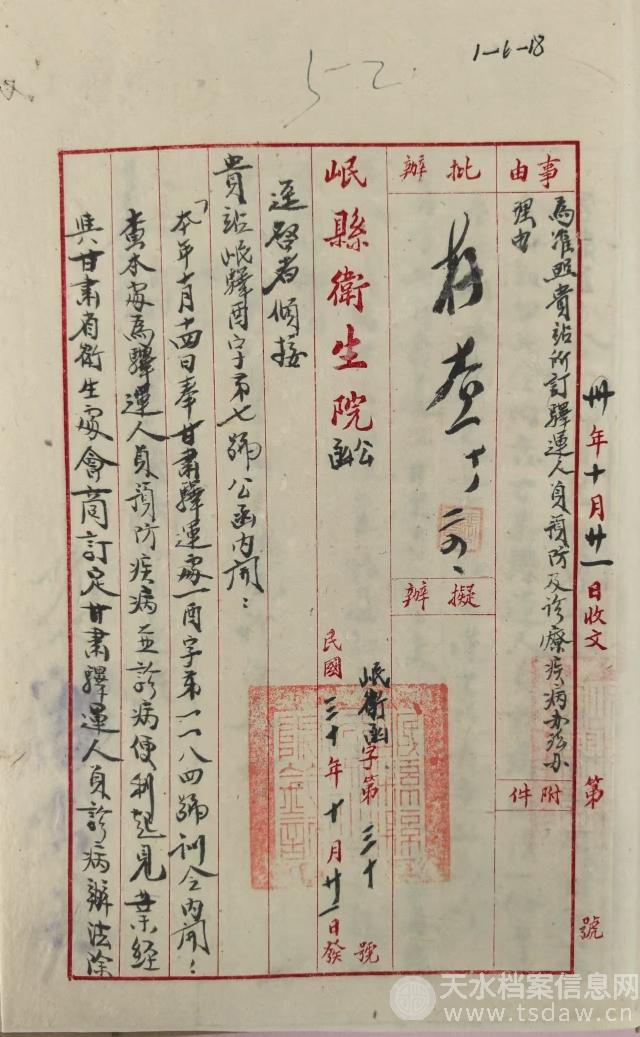 1-6-18
52.
卅年十月廿一日收文 第 號
事由
為准照貴站所訂驛運人員預防及診療疾病办法办
理由
附件
批辦
存查
擬辦
岷縣衛生院公函
岷衛函字第三十號
民國三十年十月廿一日發
逕啓者頃接
貴站岷驛酉字第七號公函内開：
「本年十月十四日奉甘肅驛運處酉字第一一八四號訓令内開：
查本處為驛運人員預防疾病並診病便利起見業經
與甘肅省衛生處會商訂定甘肅驛運人員診病辦法除
天水档案信息网
www.tsdaw.cn